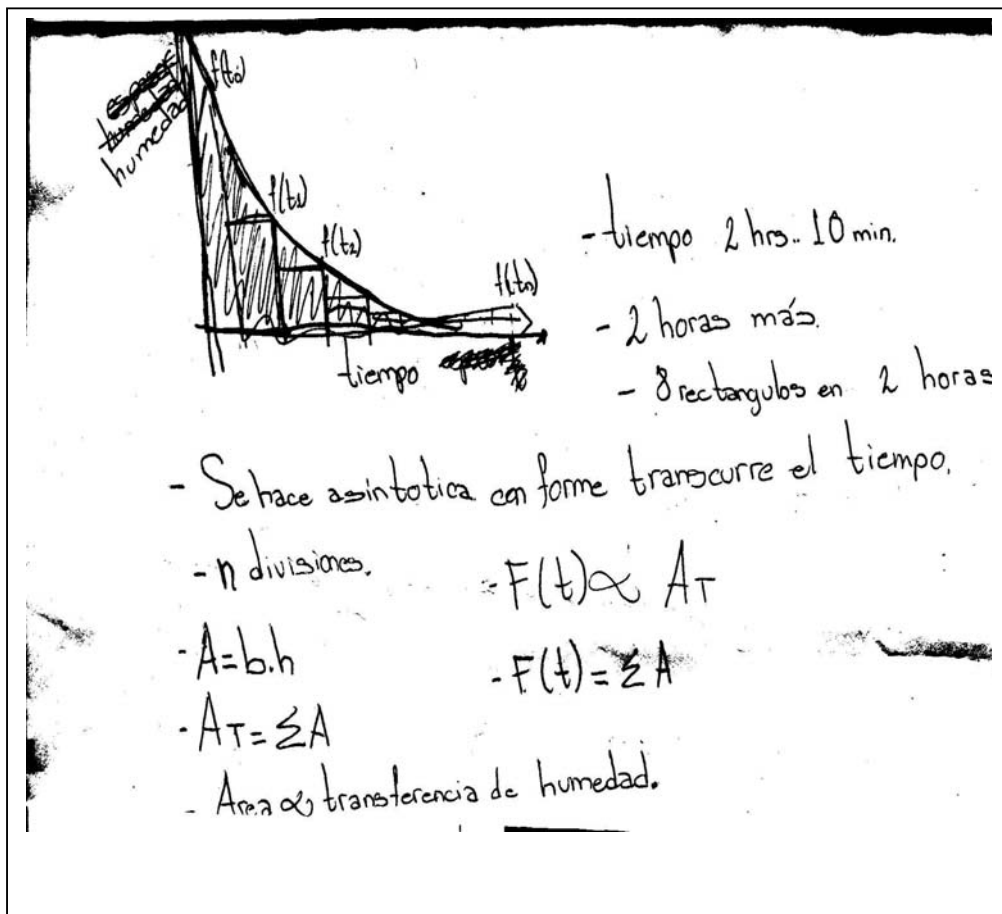 f(t₀)
humedad
f(t₁)
f(t₂)
f(tₙ)
tiempo
- tiempo 2 hrs.. 10 min.
- 2 horas más.
- 8 rectangulos en 2 horas
- Se hace asintotica con forme transcurre el tiempo.
- n divisiones.
- F(t) ∝ AT
- A=b.h
- F(t) = ΣA
- AT = ΣA
- Area ∝ transferencia de humedad.